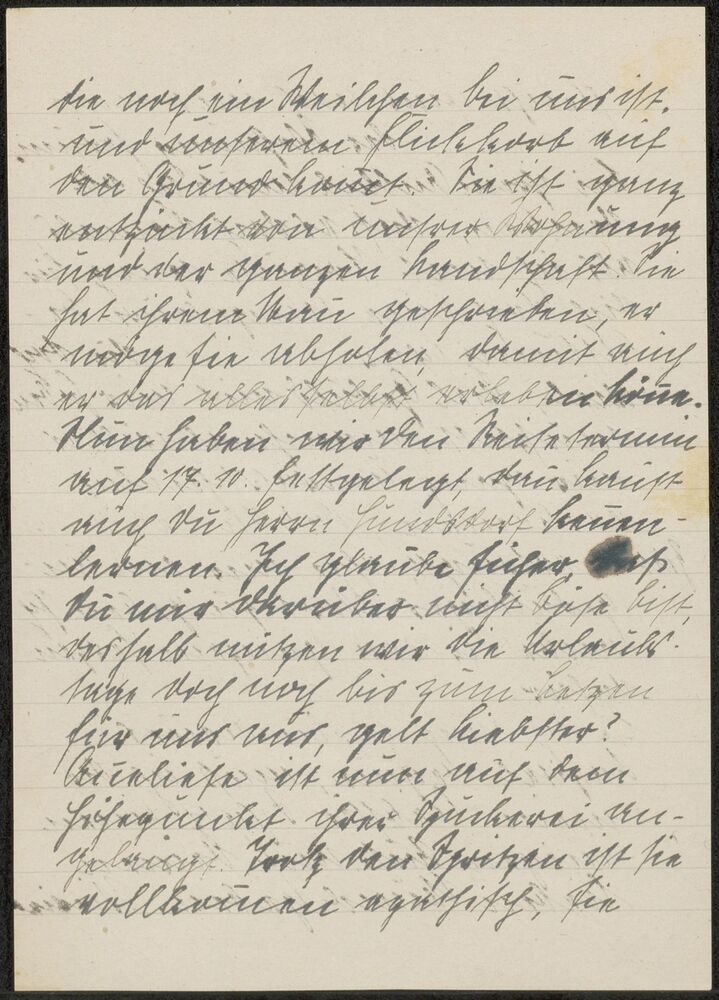 die noch ein Weilchen bei uns ist,
und unserem Flickkorb auf
den Grund kommt. Sie ist ganz
entzückt von unsrer Wohnung
und der ganzen Landschaft. Sie
hat ihrem Mann geschrieben, er
möge sie abholen, damit auch
er das alles selbst erleben könne.
Nun haben wir den Reisetermin
auf 17. 10. festgelegt, dann kannst
auch du Herrn Hundsdorf kennen-
lernen. Ich glaube sicher, daß
du mir darüber nicht böse bist,
deshalb nützen wir die Urlaubs-
tage doch noch bis zum Letzten
für uns aus, gelt Liebster?
Anneliese ist nun auf dem
Höhepunkt ihrer Spuckerei an-
gelangt. Trotz den Spritzen ist sie
vollkommen apathisch, sie